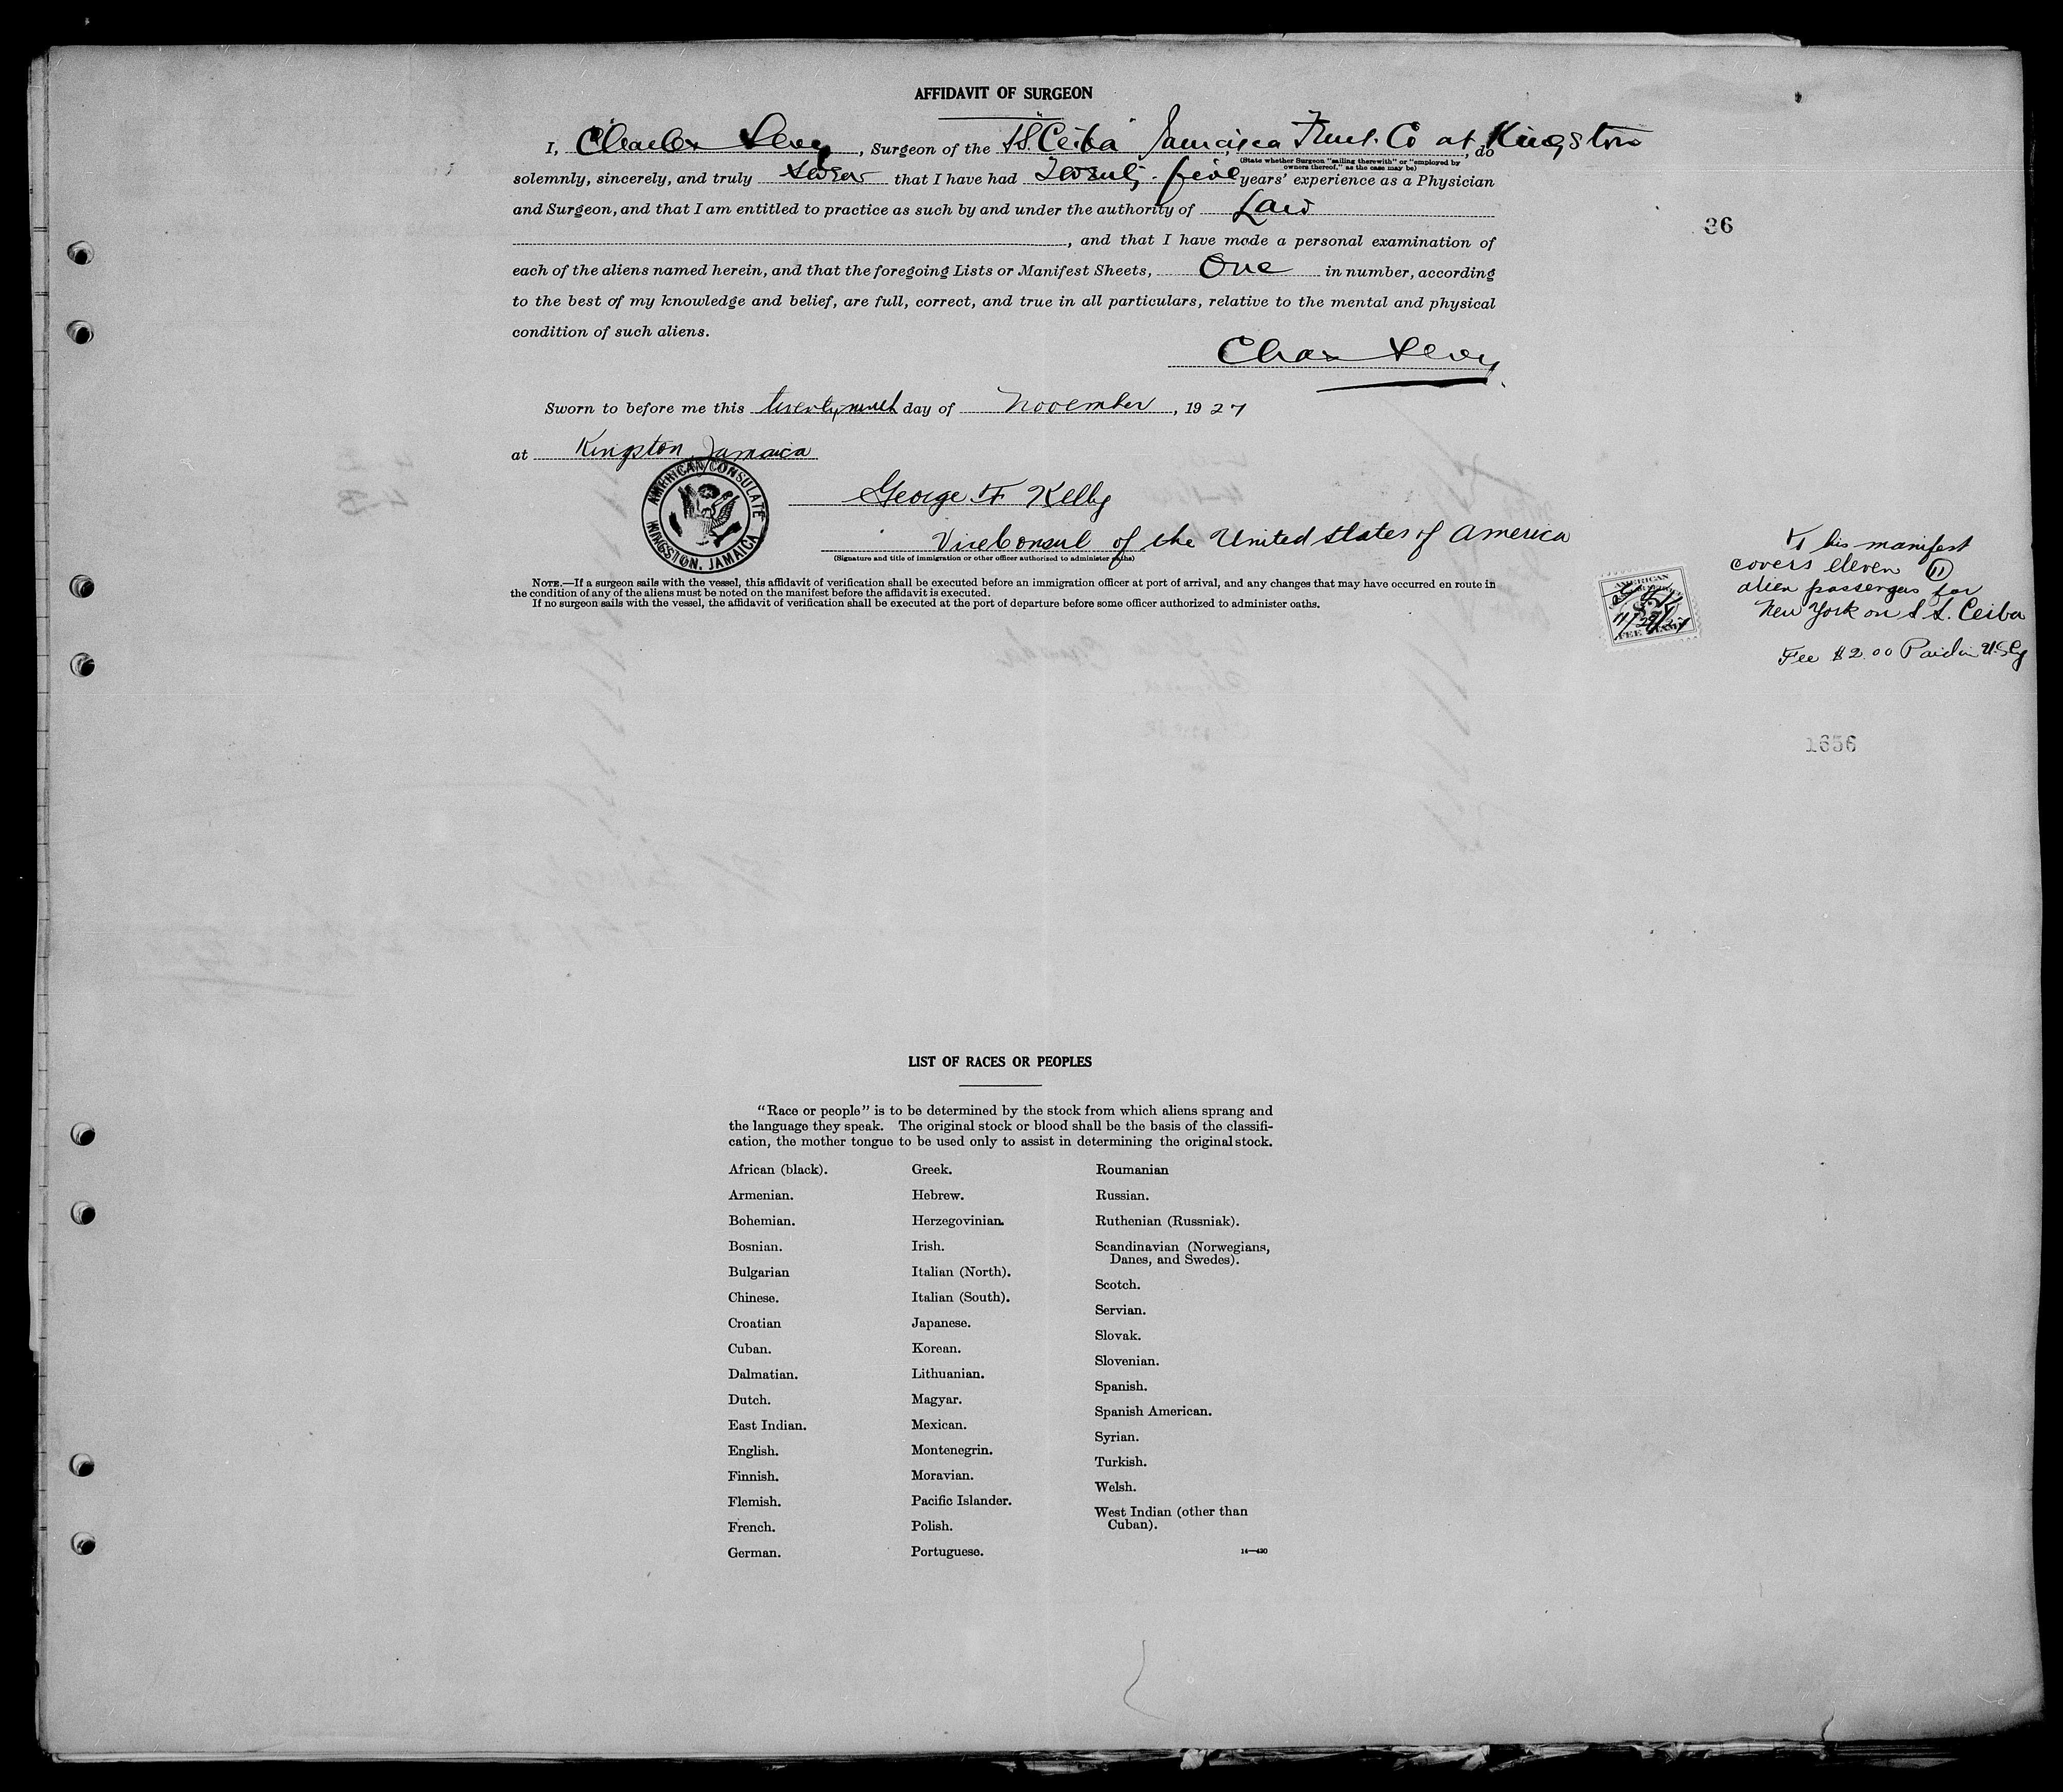 AFFIDAVIT OF SURGEON
I, Charles Levy, Surgeon of the SS. "Ceiba" Jamaica Fruit. Co at Kingston, do
(State whether Surgeon "sailing therewith" or "employed by
owners thereof," as the case may be)
solemnly, sincerely, and truly swear that I have had Twenty-five years' experience as a Physician
and Surgeon, and that I am entitled to practice as such by and under the authority of Law
36
, and that I have made a personal examination of
each of the aliens named herein, and that the foregoing Lists or Manifest Sheets, One in number, according
to the best of my knowledge and belief, are full, correct, and true in all particulars, relative to the mental and physical
condition of such aliens.
Chas Levy
Sworn to before me this twenty ninth day of November, 1927
at Kingston, Jamaica
AMERICAN CONSULATE
KINGSTON, JAMAICA
George F Kelly
Vice Consul of the United States of America
(Signature and title of immigration or other officer authorized to administer oaths)
NOTE.—If a surgeon sails with the vessel, this affidavit of verification shall be executed before an immigration officer at port of arrival, and any changes that may have occurred en route in
the condition of any of the aliens must be noted on the manifest before the affidavit is executed.
If no surgeon sails with the vessel, the affidavit of verification shall be executed at the port of departure before some officer authorized to administer oaths.
This manifest
covers eleven (11)
alien passengers for
New York on S S. Ceiba
Fee $2.00 Paid in U.S.Cy
AMERICAN
11/29/27
FEE STAMP
1656
LIST OF RACES OR PEOPLES
"Race or people" is to be determined by the stock from which aliens sprang and
the language they speak. The original stock or blood shall be the basis of the classifi-
cation, the mother tongue to be used only to assist in determining the original stock.
African (black).
Armenian.
Bohemian.
Bosnian.
Bulgarian
Chinese.
Croatian
Cuban.
Dalmatian.
Dutch.
East Indian.
English.
Finnish.
Flemish.
French.
German.
Greek.
Hebrew.
Herzegovinian.
Irish.
Italian (North).
Italian (South).
Japanese.
Korean.
Lithuanian.
Magyar.
Mexican.
Montenegrin.
Moravian.
Pacific Islander.
Polish.
Portuguese.
Roumanian
Russian.
Ruthenian (Russniak).
Scandinavian (Norwegians,
Danes, and Swedes).
Scotch.
Servian.
Slovak.
Slovenian.
Spanish.
Spanish American.
Syrian.
Turkish.
Welsh.
West Indian (other than
Cuban).
14—430